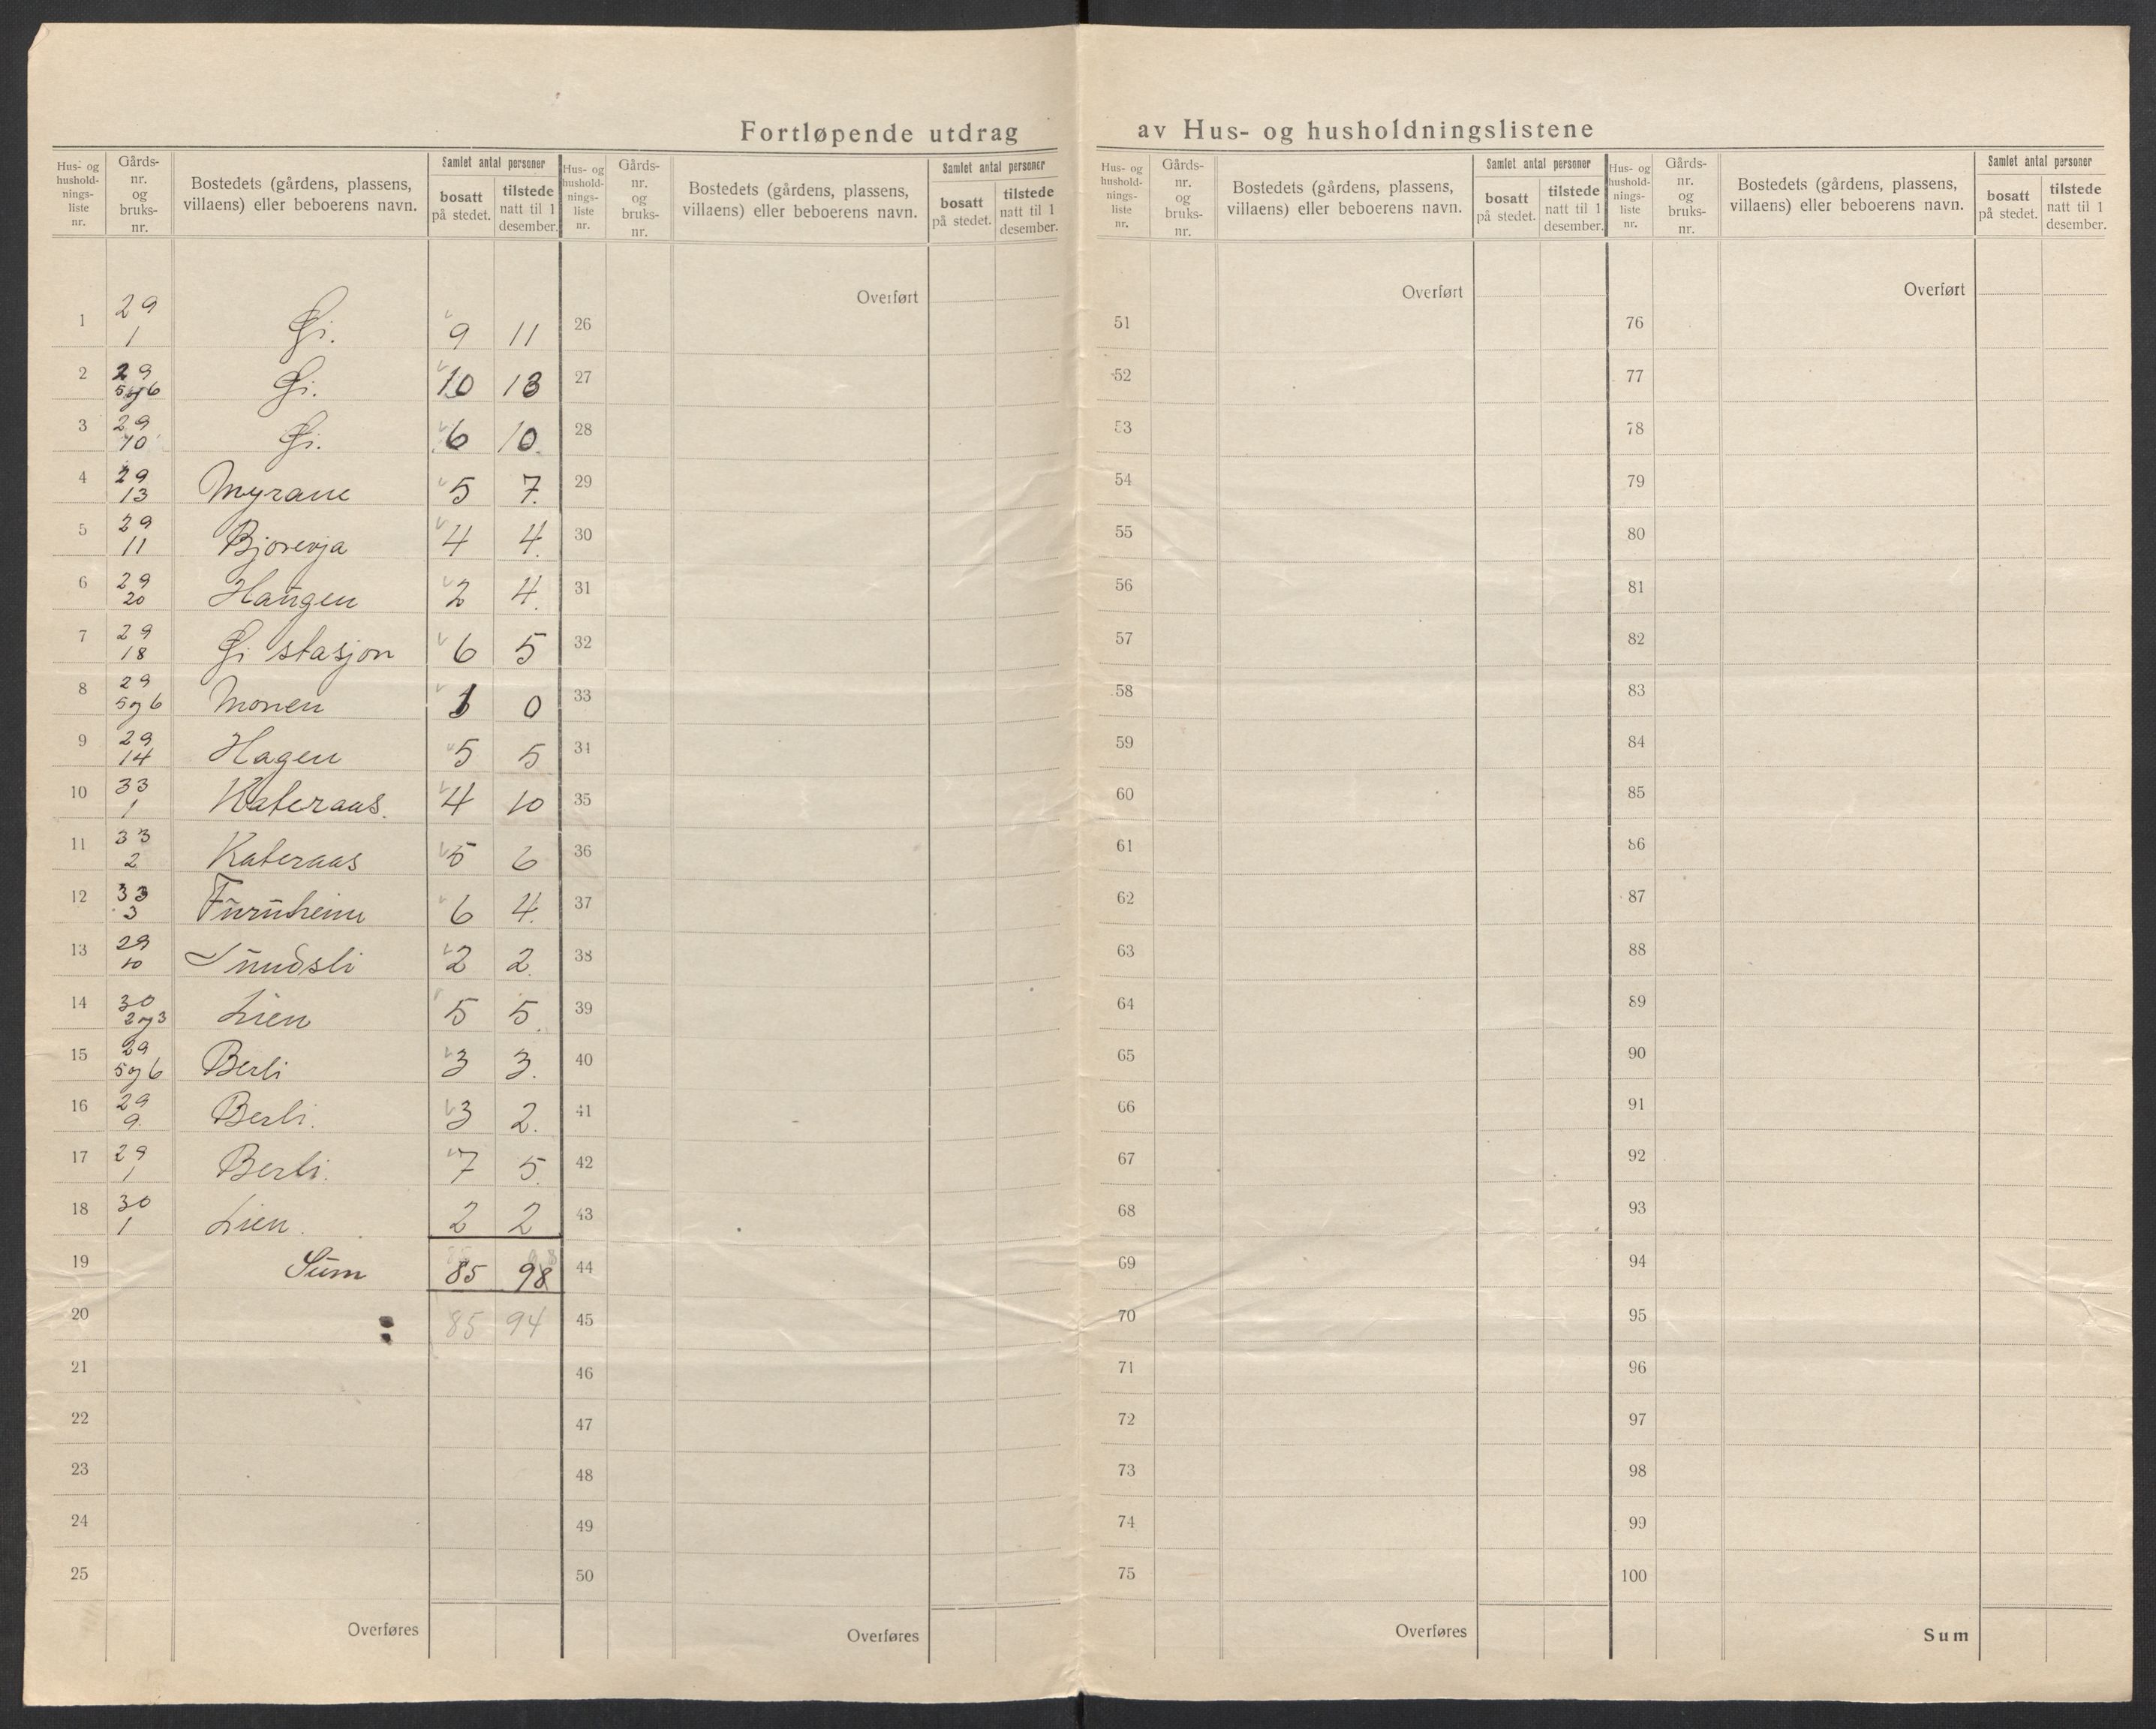 Fortløpende utdrag av Hus- og husholdningslistene
Hus- og husholdnings-liste nr. | Gårds-nr. og bruks-nr. | Bostedets (gårdens, plassens, villaens) eller beboerens navn. | Samlet antal personer | bosatt på stedet. | tilstede natt til 1 desember.
Hus- og hushold-nings-liste nr. | Gårds-nr. og bruks-nr. | Bostedets (gårdens, plassens, villaens) eller beboerens navn. | Samlet antal personer | bosatt på stedet. | tilstede natt til 1 desember.
Hus- og hushold-nings-liste nr. | Gårds-nr. og bruks-nr. | Bostedets (gårdens, plassens, villaens) eller beboerens navn. | Samlet antal personer | bosatt på stedet. | tilstede natt til 1 desember.
Hus- og hushold-nings-liste nr. | Gårds-nr. og bruks-nr. | Bostedets (gårdens, plassens, villaens) eller beboerens navn. | Samlet antal personer | bosatt på stedet. | tilstede natt til 1 desember.
1 29 1 Øi. 9 11
2 29 5 og 6 Øi. 10 13
3 29 10 Øi. 6 10.
4 29 13 Myrane 5 7.
5 29 11 Bjorevja 4 4.
6 29 20 Haugen 2 4.
7 29 18 Øi stasjon 6 5
8 29 5 og 6 Monen 1 0
9 29 14 Hagen 5 5
10 33 1 Kateraas. 4 10
11 33 2 Kateraas 5 6
12 33 3 Furuheim 6 4.
13 29 10 Sundsli 2 2.
14 30 2 og 3 Lien 5 5.
15 29 5 og 6 Berli 3 3.
16 29 9. Berli. 3 2.
17 29 1 Berli. 7 5.
18 30 1 Lien. 2 2
19 Sum 85 98
20 85 94
21
22
23
24
25
Overføres
Overført
26
27
28
29
30
31
32
33
34
35
36
37
38
39
40
41
42
43
44
45
46
47
48
49
50
Overføres
Overført
51
52
53
54
55
56
57
58
59
60
61
62
63
64
65
66
67
68
69
70
71
72
73
74
75
Overføres
Overført
76
77
78
79
80
81
82
83
84
85
86
87
88
89
90
91
92
93
94
95
96
97
98
99
100
Sum